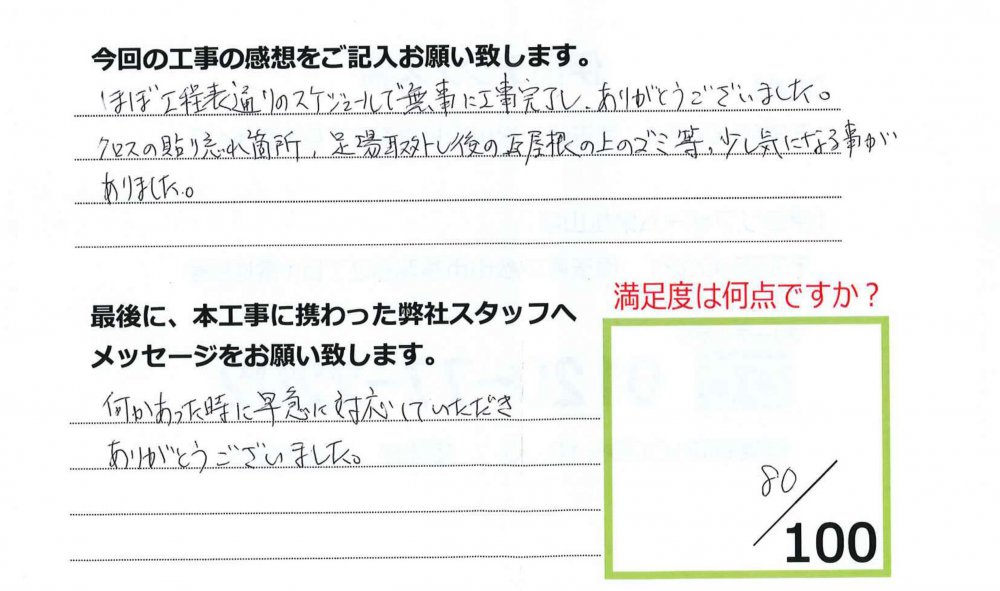 今回の工事の感想をご記入お願い致します。
ほぼ工程表通りのスケジュールで無事に工事完了し、ありがとうございました。
クロスの貼り忘れ箇所、足場取外し後の瓦屋根の上のゴミ等。少し気になる事が
ありました。
最後に、本工事に携わった弊社スタッフへ
メッセージをお願い致します。
何かあった時に早急に対応していただき
ありがとうございました。
満足度は何点ですか？
80
100